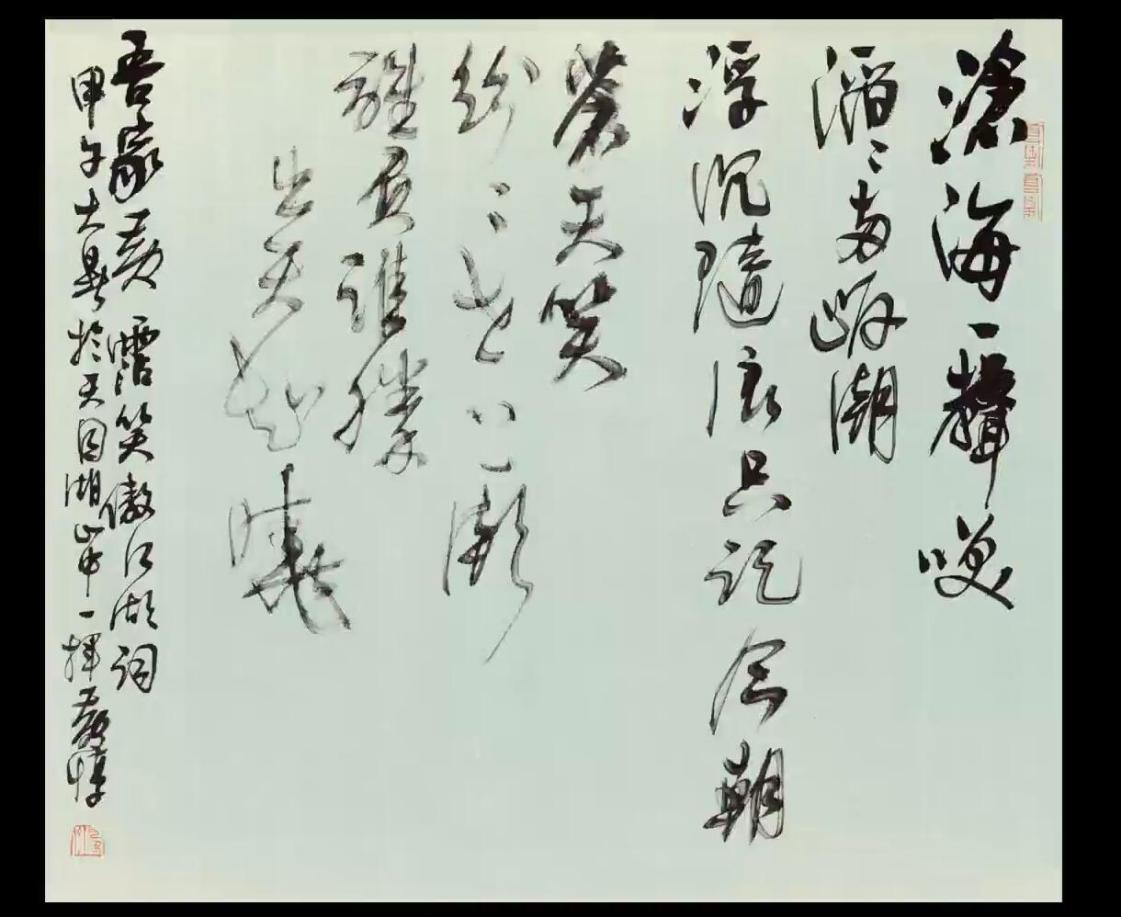 滄海一聲咲
滔〻兩岸潮
浮沉隨浪只記今朝
蒼天笑
紛〻世上潮
誰負誰勝
出天知曉
吾家黃霑笑傲江湖詞
甲午大暑於天目湖山中一揮黃惇